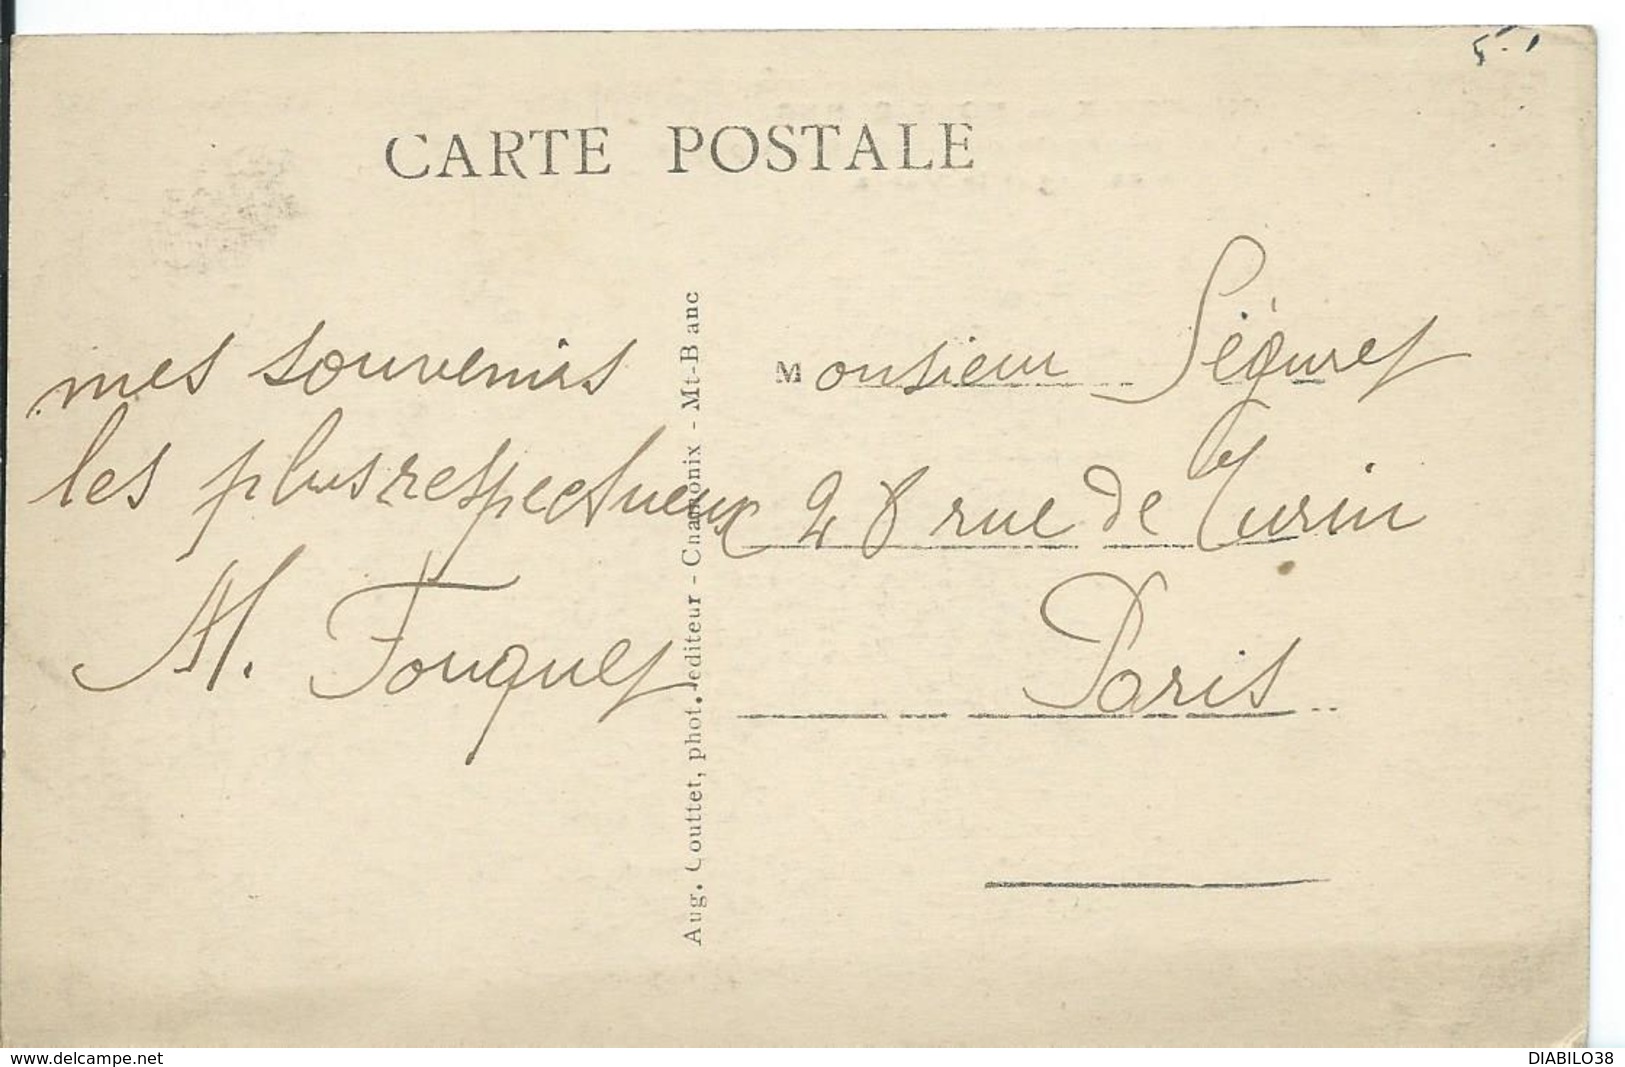 CARTE POSTALE
mes souvenirs
les plus respectueux
M. Fouquet
Aug. Couttet, phot. editeur - Chamonix - Mt-Blanc
Monsieur Séguret
28 rue de Turin
Paris
www.delcampe.net
DIABILO38